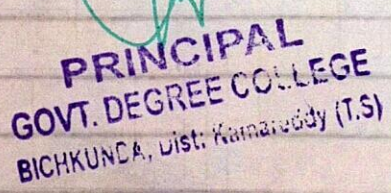 PRINCIPAL
GOVT. DEGREE COLLEGE
BICHKUNDA, Dist: Kamareddy (T.S)